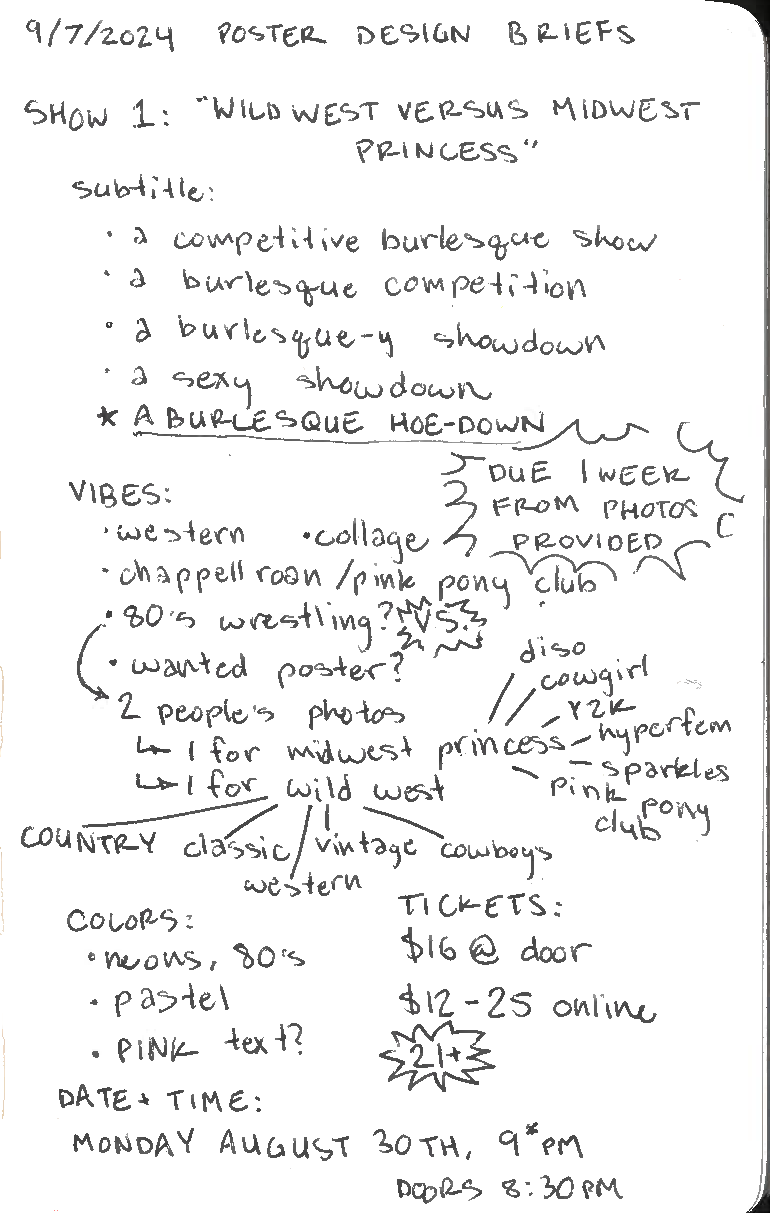 9/7/2024 POSTER DESIGN BRIEFS
SHOW 1: "WILD WEST VERSUS MIDWEST
PRINCESS"
subtitle:
• a competitive burlesque show
• a burlesque competition
• a burlesque-y showdown
• a sexy showdown
* A BURLESQUE HOE-DOWN
DUE 1 WEEK
FROM PHOTOS
PROVIDED
VIBES:
• western • collage
• chappell roan / pink pony club
• 80's wrestling? VS.
• wanted poster?
2 people's photos
↳ 1 for midwest princess
diso
cowgirl
Y2K
hyperfem
sparkles
pink pony
club
↳ 1 for wild west
COUNTRY classic vintage cowboys
western
COLORS:
• neons, 80's
• pastel
• PINK text?
TICKETS:
$16 @ door
$12-25 online
21+
DATE + TIME:
MONDAY AUGUST 30TH, 9*PM
DOORS 8:30PM